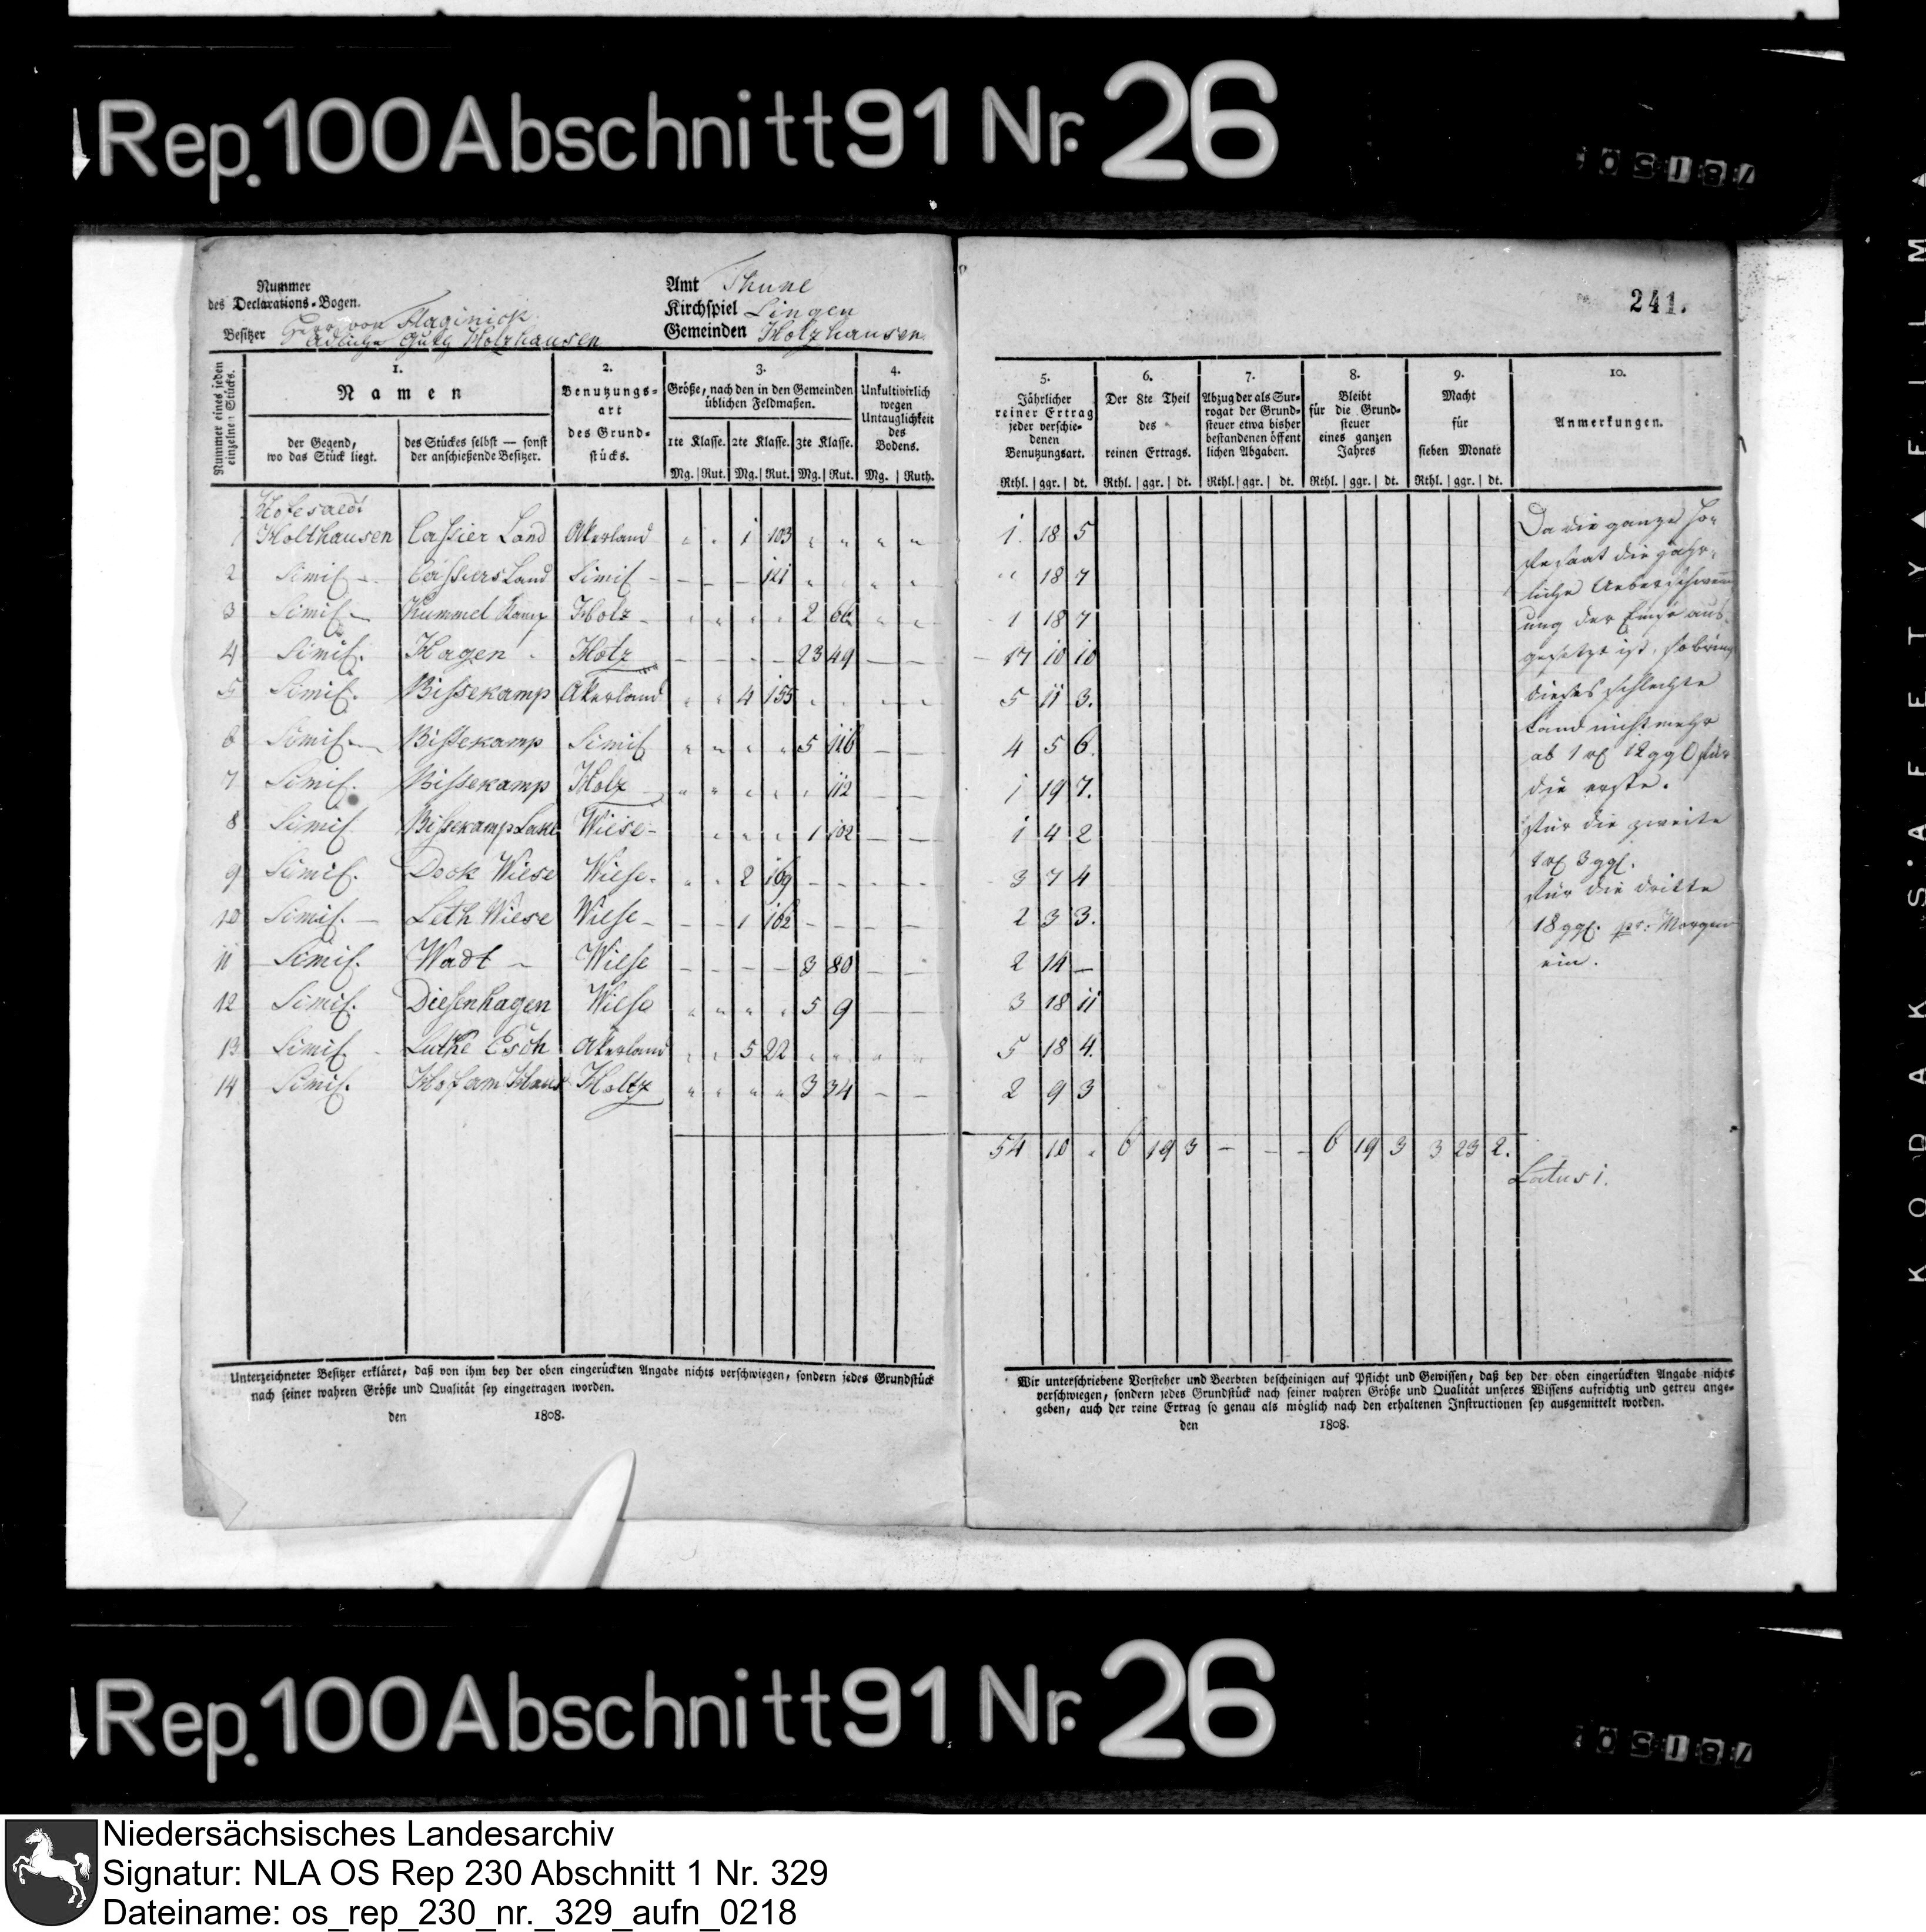 Rep. 100 Abschnitt 91 Nr. 26
Nummer
des Declarations-Bogen.
Besitzer Herr von
adlichen Guts Holzhausen
Amt Thune
Kirchspiel Lingen
Gemeinden Holzhausen
241.
Nummer eines jeden einzelnen Stücks.
1.
Namen
der Gegend, wo das Stück liegt.
des Stückes selbst — sonst der anschießende Besitzer.
2.
Benutzungs-art des Grund-stücks.
3.
Größe, nach den in den Gemeinden üblichen Feldmaßen.
1te Klasse. 2te Klasse. 3te Klasse.
Mg. Rut. Mg. Rut. Mg. Rut.
4.
Unkultivirlich wegen Untauglichkeit des Bodens.
Mg. Ruth.
5.
Jährlicher reiner Ertrag jeder verschie-denen Benutzungsart.
Rthl. ggr. dt.
6.
Der 8te Theil des reinen Ertrags.
Rthl. ggr. dt.
7.
Abzug der als Sur-rogat der Grund-steuer etwa bisher bestandenen öffent lichen Abgaben.
Rthl. ggr. dt.
8.
Bleibt für die Grund-steuer eines ganzen Jahres
Rthl. ggr. dt.
9.
Macht für sieben Monate
Rthl. ggr. dt.
10.
Anmerkungen.
1 Holthausen Cassier Land Akerland 1 103 1 18 5
2 Simil Cassiers Land Simil 121 18 7
3 Simil Kummel Kamp Holz 2 66 1 18 7
4 Simil. Hagen Holz 23 49 17 10 10
5 Simil. Bissekamp Akerland 4 155 5 11 3.
6 Simil Bissekamp Simil 5 116 4 5 6.
7 Simil. Bissekamp Holz 112 1 19 7.
8 Simil Bissekamp Wiese 1 102 1 4 2
9 Simil. Dock Wiese Wiese. 2 169 3 7 4
10 Simil. Leth Wiese Wiese 1 162 2 3 3.
11 Simil. Wadt Wiese 3 80 2 14 —
12 Simil. Diesenhagen Wiese 5 9 3 18 11
13 Simil Lutke Esch Akerland 5 22 5 18 4.
14 Simil. Hof am Haus Holtz 3 34 2 9 3
54 10 6 19 3 — — — 6 19 3 3 23 2.
Latus 1.
Da die ganze Ho-
fesaat die jähr-
liche Ueberschwemm
ung der Emse aus-
gesetzt ist, so bringt
dieses schlechte
Land nicht mehr
ab 1 rl 12 ggl für
die erste.
für die zweite
1 rl 3 ggl.
für die dritte
18 ggl. pr: Morgen
ein.
Unterzeichneter Besitzer erkläret, daß von ihm bey der oben eingerückten Angabe nichts verschwiegen, sondern jedes Grundstück
nach seiner wahren Größe und Qualität sey eingetragen worden.
den 1808.
Wir unterschriebene Vorsteher und Beerbten bescheinigen auf Pflicht und Gewissen, daß bey der oben eingerückten Angabe nichts
verschwiegen, sondern jedes Grundstück nach seiner wahren Größe und Qualität unseres Wissens aufrichtig und getreu ange-
geben, auch der reine Ertrag so genau als möglich nach den erhaltenen Instructionen sey ausgemittelt worden.
den 1808.
KODAK SAFETY FILM
Rep. 100 Abschnitt 91 Nr. 26
Niedersächsisches Landesarchiv
Signatur: NLA OS Rep 230 Abschnitt 1 Nr. 329
Dateiname: os_rep_230_nr._329_aufn_0218